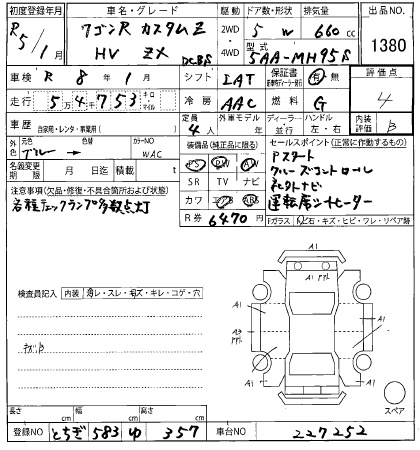 初度登録年月 車名・グレード 駆動 ドア数・形状 排気量 出品NO.
R5/1月 ワゴンR カスタムZ 2WD 5 W 660 cc 1380
HV ZX DCBS 4WD 型式 5AA-MH95S
車検 R 8年 1月 シフト IAT 保証書 有・無 評価点
走行 5 4 7 5 3 キロ・マイル 冷房 AAC 燃料 G 4
車歴 自家用・レンタ・事業用( ) 定員 4人 外車モデル 年 ディーラー 並行 ハンドル 左・右 内装評価 B
外色 元色 色替 カラーNO 装備品(純正品に限る) セールスポイント(正常に作動するもの)
ブルー→ WAC PS PW AW Pスタート
名義変更期限 月 日迄 積載 t SR TV ナビ クルーズコントロール
注意事項(欠品・修復・不具合箇所および状態) カワ エアB ABS コネクトナビ
各種チェックランプ多数点灯 R券 6470円 運転席シートヒーター
Fガラス 飛石・キズ・ヒビ・ワレ・リペア跡
検査員記入 内装 汚レ・スレ・キズ・キレ・コゲ・穴
キズB
A1
A1
A1
A1
A1
A1
スペア
長さ cm 幅 cm 高さ cm
登録NO とちぎ 583 ゆ 357 車台NO 227252